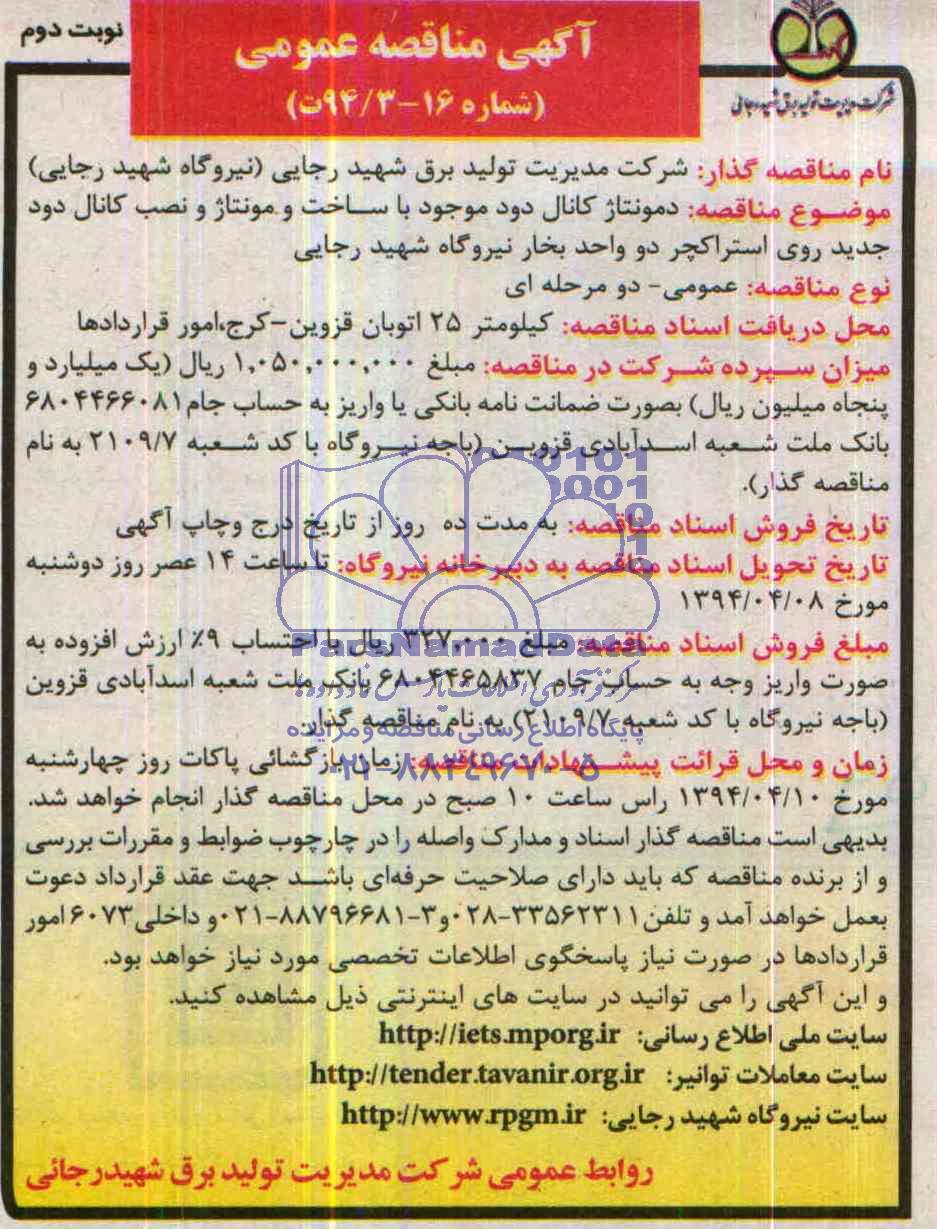 نوبت دوم
آگهی مناقصه عمومی
(شماره ۱۶-۹۴/۳ت)
شرکت مدیریت تولید برق شهید رجائی
نام مناقصه گذار: شرکت مدیریت تولید برق شهید رجایی (نیروگاه شهید رجایی)
موضوع مناقصه: دمونتاژ کانال دود موجود با ساخت و مونتاژ و نصب کانال دود
جدید روی استراکچر دو واحد بخار نیروگاه شهید رجایی
نوع مناقصه: عمومی- دو مرحله ای
محل دریافت اسناد مناقصه: کیلومتر ۲۵ اتوبان قزوین-کرج،امور قراردادها
میزان سپرده شرکت در مناقصه: مبلغ ۱,۰۵۰,۰۰۰,۰۰۰ ریال (یک میلیارد و
پنجاه میلیون ریال) بصورت ضمانت نامه بانکی یا واریز به حساب جام۶۸۰۴۴۶۶۰۸۱
بانک ملت شعبه اسدآبادی قزوین (باجه نیروگاه با کد شعبه ۲۱۰۹/۷ به نام
مناقصه گذار).
تاریخ فروش اسناد مناقصه: به مدت ده روز از تاریخ درج وچاپ آگهی
تاریخ تحویل اسناد مناقصه به دبیرخانه نیروگاه: تا ساعت ۱۴ عصر روز دوشنبه
مورخ ۱۳۹۴/۰۴/۰۸
مبلغ فروش اسناد مناقصه: مبلغ ۳۲۷,۰۰۰ ریال با احتساب ۹٪ ارزش افزوده به
صورت واریز وجه به حساب جام ۶۸۰۴۴۶۵۸۳۷ بانک ملت شعبه اسدآبادی قزوین
(باجه نیروگاه با کد شعبه ۲۱۰۹/۷) به نام مناقصه گذار.
زمان و محل قرائت پیشنهادات مناقصه: زمان بازگشائی پاکات روز چهارشنبه
مورخ ۱۳۹۴/۰۴/۱۰ راس ساعت ۱۰ صبح در محل مناقصه گذار انجام خواهد شد.
بدیهی است مناقصه گذار اسناد و مدارک واصله را در چارچوب ضوابط و مقررات بررسی
و از برنده مناقصه که باید دارای صلاحیت حرفه‌ای باشد جهت عقد قرارداد دعوت
بعمل خواهد آمد و تلفن ۳۳۵۶۲۳۱۱-۰۲۸ و۳-۸۸۷۹۶۶۸۱-۰۲۱ و داخلی ۶۰۷۳ امور
قراردادها در صورت نیاز پاسخگوی اطلاعات تخصصی مورد نیاز خواهد بود.
و این آگهی را می توانید در سایت های اینترنتی ذیل مشاهده کنید.
سایت ملی اطلاع رسانی: http://iets.mporg.ir
سایت معاملات توانیر: http://tender.tavanir.org.ir
سایت نیروگاه شهید رجایی: http://www.rpgm.ir
روابط عمومی شرکت مدیریت تولید برق شهیدرجائی
ParsNamadData
پایگاه اطلاع رسانی مناقصه و مزایده
۰۲۱-۸۸۳۴۹۶۷۰-۵